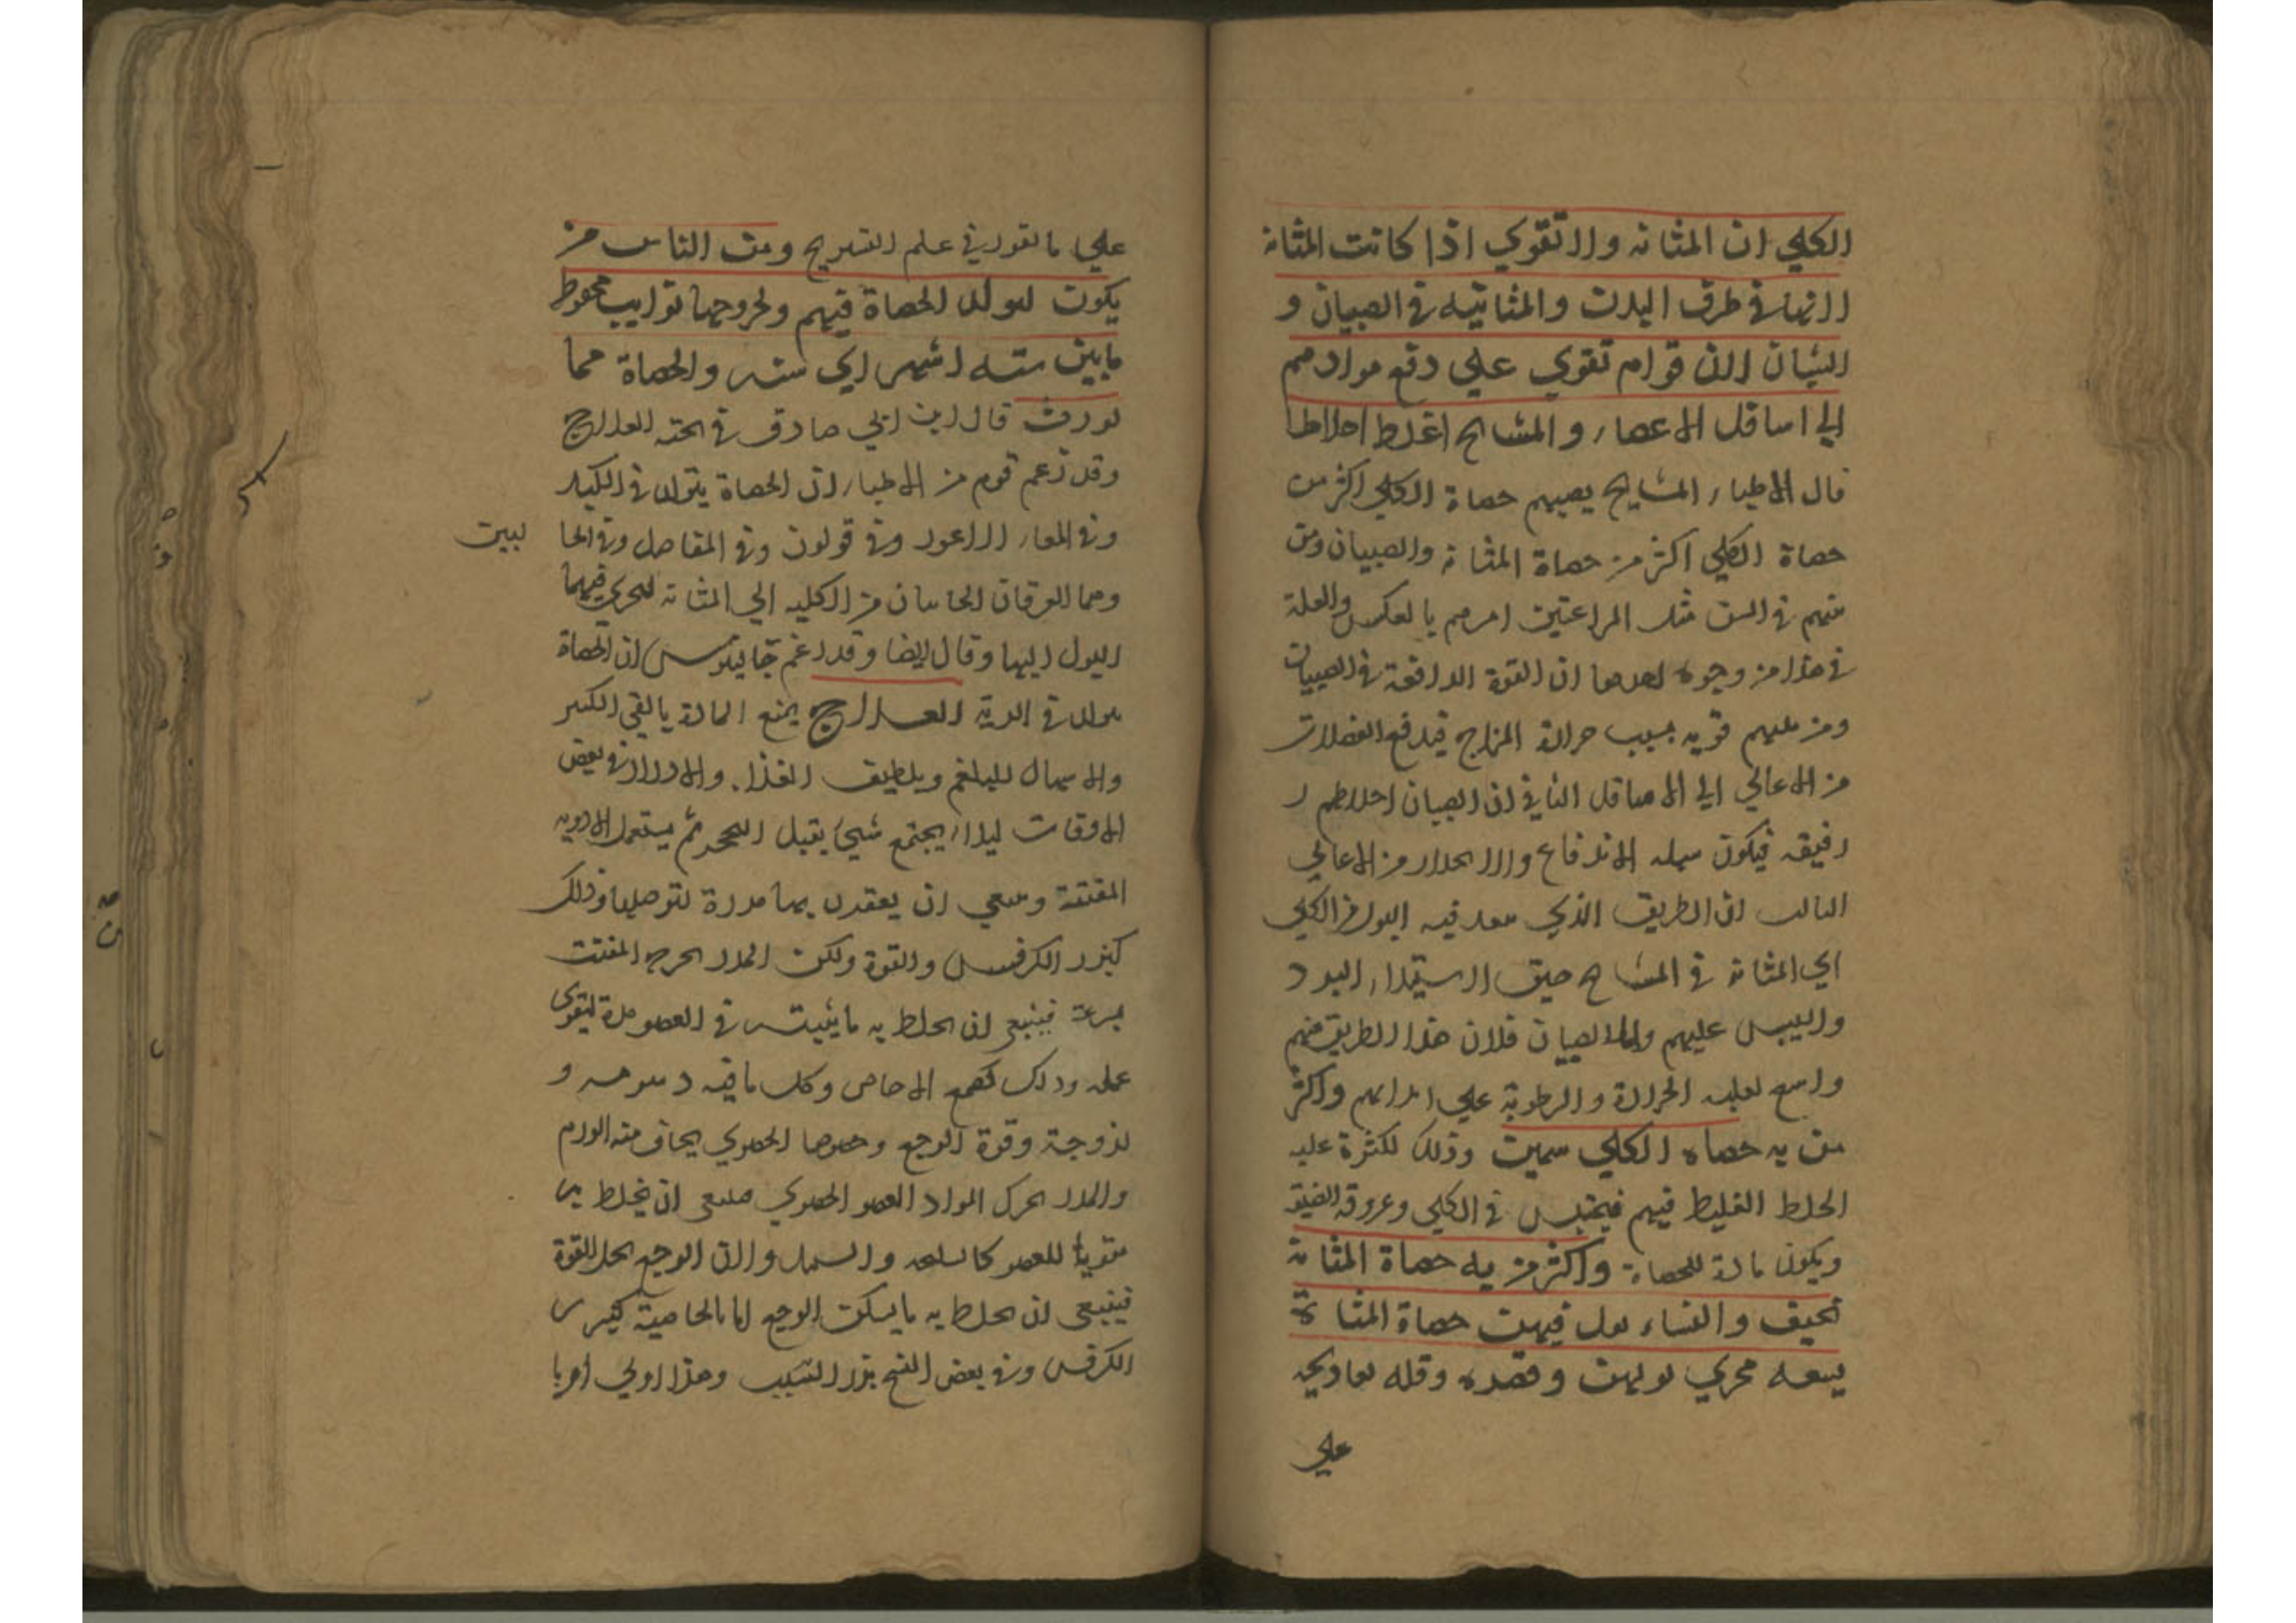 الكلي ان المثانه والا تقوي اذا كانت المثانة
لانها في طرف البدن والمثانيه في الصبيان و
الشبان لان قواهم تقوي علي دفع موادهم
الي اسافل الاعضاء والمشايخ اغلظ اخلاطا
قال الاطباء المشايخ يصيبهم حصاة الكلي اكثر من
حصاة الكلي اكثر من حصاة المثانة والصبيان ومن
منهم في السن مثل المراهقين امرهم بالعكس والعلة
في هذا من وجوه احدها ان القوة الدافعة في الصبيان
ومن يليهم قويه بسبب حرارة المزاج فيدفع الفضلات
من الاعالي الي الاسافل الثاني ان الصبيان اخلاطهم
رقيقه فيكون سهله الاندفاع والانحدار من الاعالي
الثالث ان الطريق الذي ينفد فيه البول من الكلي
الي المثانة في المشايخ ضيق لاستيلاء البرد
واليبس عليهم واما الصبيان فلان هذا الطريق منهم
واسع لغلبه الحرارة والرطوبة علي ابدانهم واكثر
من به حصاه الكلي سمين وذلك لكثرة غلبه
الخلط الغليظ فيهم فيحتبس في الكلي وعروقه الضيقه
ويكون مادة للحصاة واكثر من به حصاة المثانة
نحيف والنساء يقل فيهن حصاة المثانة
لسعه مجري بولهن وقصره وقله تعاريجه
علي
علي ما تقرر في علم التشريح ومن الناس من
يكون لتولد الحصاة فيهم ولخروجها نوايب محفوظ
ما بين سته اشهر الي سنه والحصاة مما
تورث قال ابن ابي صادق في العلاج
وقد زعم قوم من الاطباء ان الحصاة يتولد في الكبد
وفي المعاء الاعور وفي قولون وفي المفاصل وفي الحا
لبين
وهما العرقان الجاثيان من الكليه الي المثانه ليجري فيهما
البول اليها وقال ايضا وقد زعم جالينوس ان الحصاة
يتولد في الرية العلاج يمنع المادة بالقي الكثير
والاسهال للبلغم وبلطيف الغذا والادرار في بعض
الاوقات ليلا يجتمع شيء يقبل التحجر ثم يستعمل الادويه
المفتتة وينبغي ان يعقدن بها مدرة لتوصلها وذلك
كبزر الكرفس والقوة ولكن المدر يخرج المفتت
بسرعة فينبغي ان يخلط به ما يثبته في العضو مدة ليقوي
عمله وذلك كصمغ الاجاص وكل ما فيه دسومه و
لزوجة وقوة الوجع وخصوصا الحصوي يخاف منه الورم
والمدر يحرك المواد العضو الحصوي فينبغي ان يخلط به
مقويا للعضو كالسليخه والسنبل ولان الوجع يحل القوة
فينبغي ان يخلط به ما يسكن الوجع اما بالخاصية كبزر
الكرفس وفي بعض النسخ بزر الشبت وهذا اولي